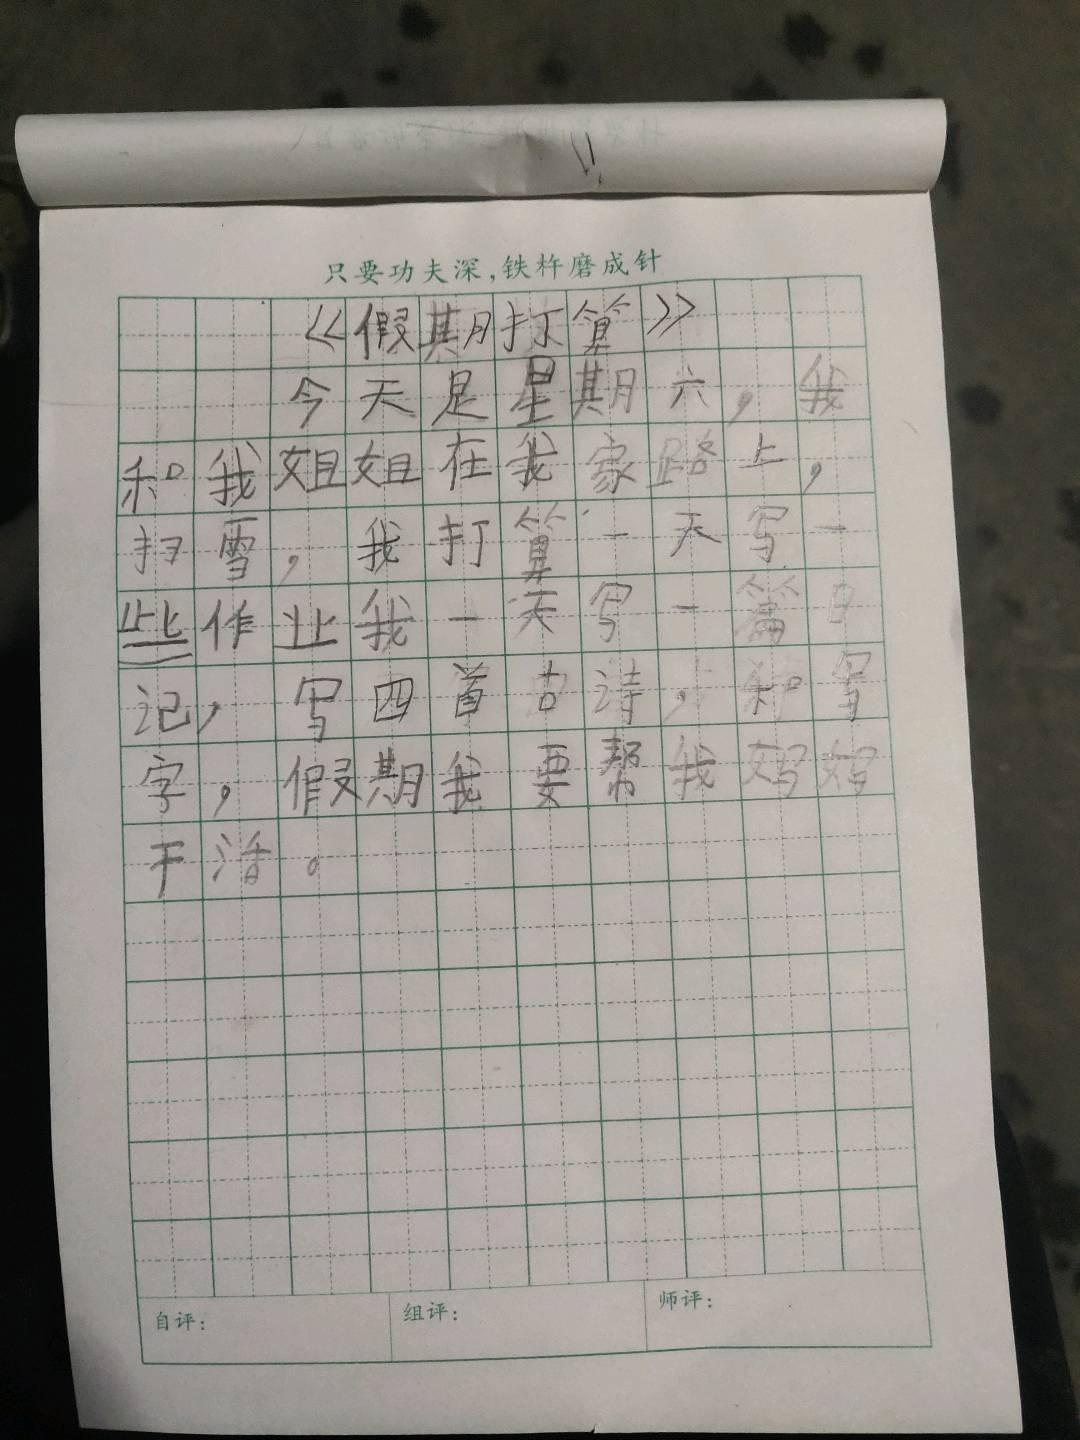 只要功夫深,铁杵磨成针
《假期打算》
今天是星期六，我
和我姐姐在我家路上，
扫雪，我打算一天写一
些作业我一天写一篇日
记，写四首古诗，和写
字，假期我要帮我妈妈
干活。
自评：
组评：
师评：